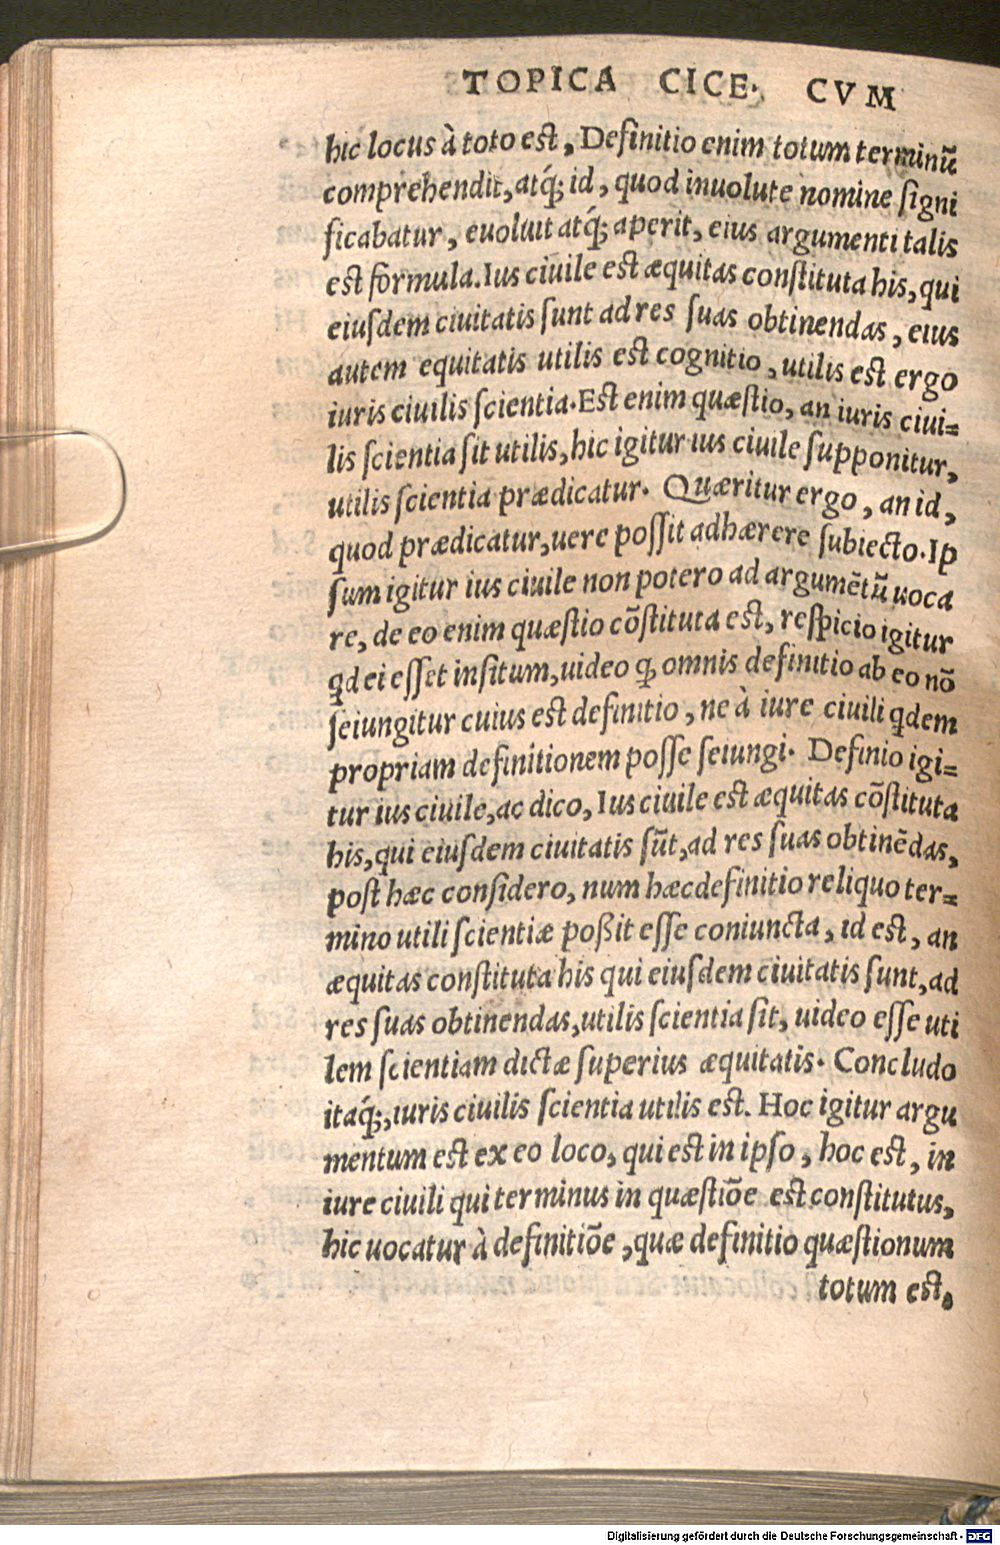 TOPICA CICE. CVM
hic locus à toto est, Definitio enim totum terminũ
comprehendit, atq́; id, quod inuolute nomine signi
ficabatur, euoluit atq́; aperit, eius argumenti talis
est formula. Ius ciuile est æquitas constituta his, qui
eiusdem ciuitatis sunt ad res suas obtinendas, eius
autem equitatis utilis est cognitio, utilis est ergo
iuris ciuilis scientia. Est enim quæstio, an iuris ciui=
lis scientia sit utilis, hic igitur ius ciuile supponitur,
utilis scientia prædicatur. Quæritur ergo, an id,
quod prædicatur, uere possit adhærere subiecto. Ip
sum igitur ius ciuile non potero ad argumẽtũ uoca
re, de eo enim quæstio cõstituta est, respicio igitur
qd ei esset insitum, uideo ꝙ omnis definitio ab eo nõ
seiungitur cuius est definitio, ne à iure ciuili qdem
propriam definitionem posse seiungi. Definio igi=
tur ius ciuile, ac dico, Ius ciuile est æquitas cõstituta
his, qui eiusdem ciuitatis sũt, ad res suas obtinẽdas,
post hæc considero, num hæc definitio reliquo ter=
mino utili scientiæ poßit esse coniuncta, id est, an
æquitas constituta his qui eiusdem ciuitatis sunt, ad
res suas obtinendas, utilis scientia sit, uideo esse uti
lem scientiam dictæ superius æquitatis. Concludo
itaq́;, iuris ciuilis scientia utilis est. Hoc igitur argu
mentum est ex eo loco, qui est in ipso, hoc est, in
iure ciuili qui terminus in quæstiõe est constitutus,
hic uocatur à definitiõe, quæ definitio quæstionum
totum est,
Digitalisierung gefördert durch die Deutsche Forschungsgemeinschaft - DFG